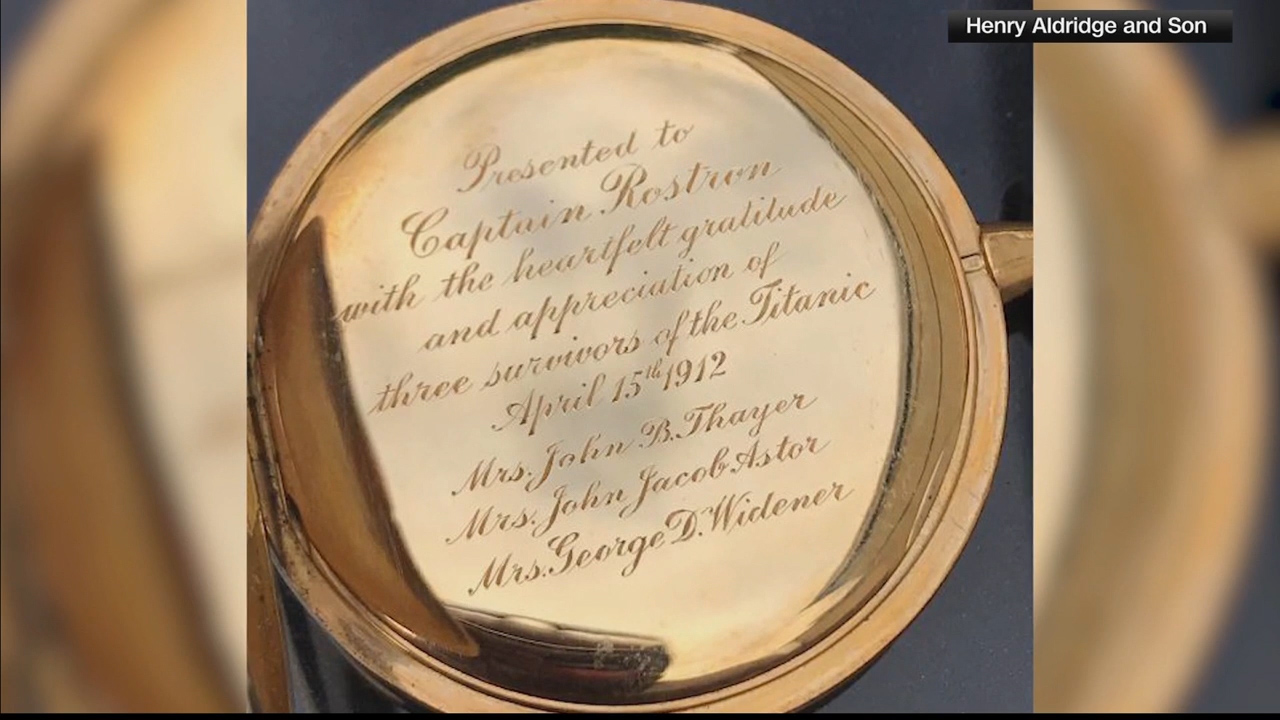 Henry Aldridge and Son
Presented to
Captain Rostron
with the heartfelt gratitude
and appreciation of
three survivors of the Titanic
April 15th 1912
Mrs. John B. Thayer
Mrs. John Jacob Astor
Mrs. George D. Widener